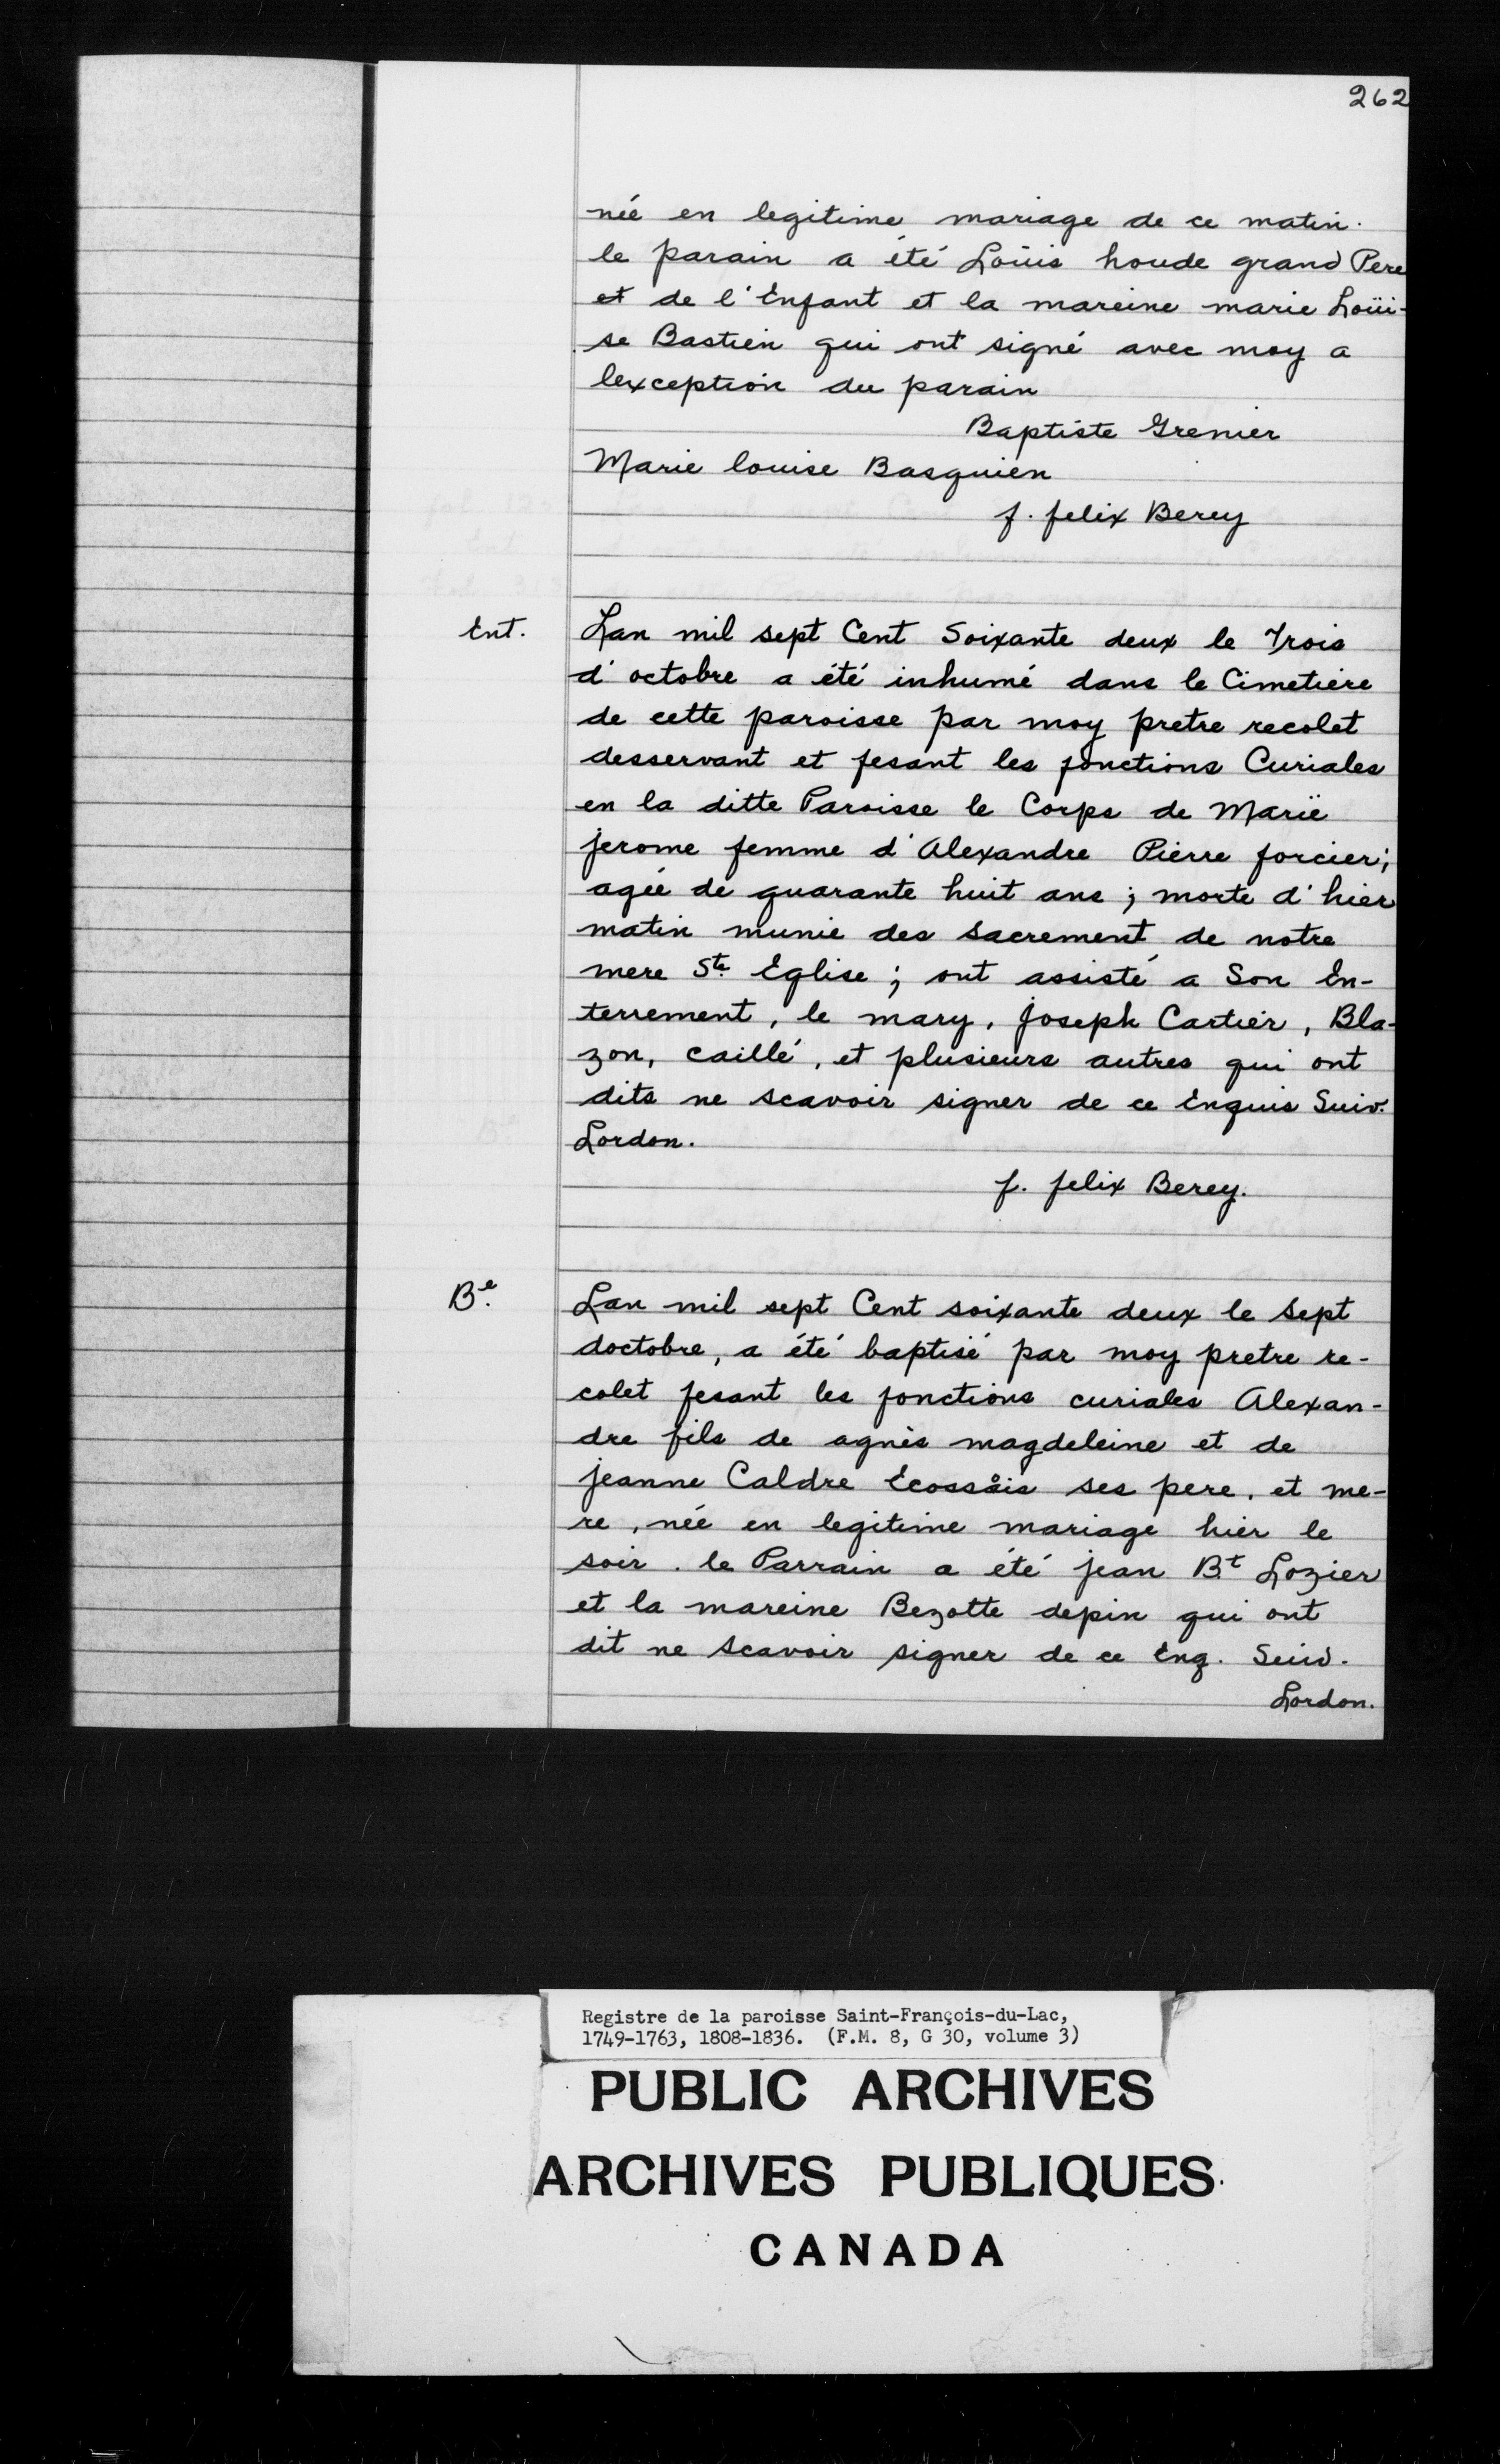 262
née en legitime mariage de ce matin.
le parain a été Loüis houde grand Pere
et de l'Enfant et la mareine marie Loüi-
se Bastien qui ont signé avec moy a
lexception du parain
Baptiste Grenier
Marie louise Basquien
f. felix Berey
Ent.
Lan mil sept Cent Soixante deux le Trois
d'octobre a été inhumé dans le Cimetiere
de cette paroisse par moy pretre recolet
desservant et fesant les fonctions Curiales
en la ditte Paroisse le Corps de Marïe
jerome femme d'Alexandre Pierre forcier;
agée de quarante huit ans ; morte d'hier
matin munie des Sacrement de notre
mere Ste Eglise ; ont assisté a Son En-
terrement, le mary, Joseph Cartier, Bla-
zon, caillé, et plusieurs autres qui ont
dits ne scavoir signer de ce Enquis Suiv.
Lordon.
f. felix Berey.
Be.
Lan mil sept Cent soixante deux le Sept
doctobre, a été baptisé par moy pretre re-
colet fesant les fonctions curiales Alexan-
dre fils de agnès magdeleine et de
jeanne Caldre Ecossais ses pere, et me-
re, née en legitime mariage hier le
soir. le Parrain a été jean Bt Lozier
et la mareine Bezotte depin qui ont
dit ne Scavoir signer de ce Enq. Suiv.
Lordon.
Registre de la paroisse Saint-François-du-Lac,
1749-1763, 1808-1836. (F.M. 8, G 30, volume 3)
PUBLIC ARCHIVES
ARCHIVES PUBLIQUES
CANADA